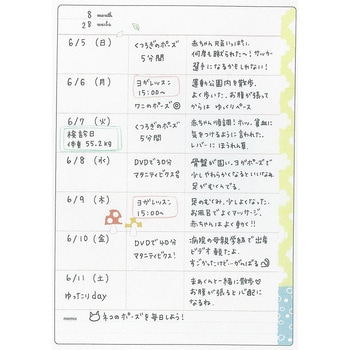 8 month
28 weeks
6/5 (日)
くつろぎのポーズ
5分間
赤ちゃん元気いっぱい。
何度も蹴られた〜! サッカー
選手になるかもしれない!
6/6 (月)
ヨガレッスン
15:00〜
ワニのポーズ◎
運動公園内を散歩。
よく歩いた。お腹が張って
からは ゆっくりペース
6/7 (火)
検診日
体重 55.2kg
くつろぎのポーズ
5分間
赤ちゃんの順調! ホッ。貧血に
気をつけるように言われた。
レバーに ほうれん草。
6/8 (水)
DVDで30分
マタニティビクス
骨盤が固い。ヨガポーズで
少しやわらかくなるといいなぁ。
足がむくんでる。
6/9 (木)
ヨガレッスン
15:00〜
足のむくみ、少し良くなった。
お風呂でよくマッサージ。
赤ちゃんはよく動く!!
6/10 (金)
DVDで40分
マタニティビクス!
病院の母親学級で出産
ビデオ観たよ。
すごかったけどーがんばる
6/11 (土)
ゆったりday
まあくんと一緒に散歩
お腹が張ると心配に
なるね。
memo
ネコのポーズを毎日しよう!